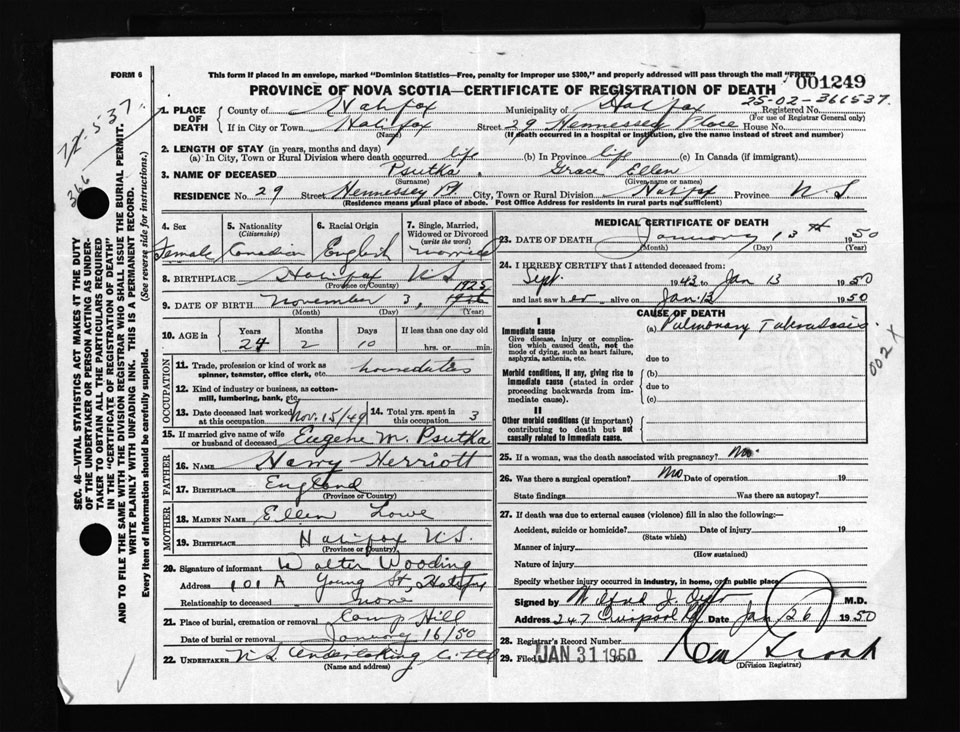 FORM 6
This form if placed in an envelope, marked "Dominion Statistics—Free, penalty for improper use $300," and properly addressed will pass through the mail "FREE"
001249
PROVINCE OF NOVA SCOTIA—CERTIFICATE OF REGISTRATION OF DEATH
25-02-366537.
1. PLACE OF DEATH
County of Halifax Municipality of Halifax Registered No.
(For use of Registrar General only)
If in City or Town Halifax Street 29 Hennessey Place House No.
(Name) (If death occurred in a hospital or institution, give the name instead of street and number)
2. LENGTH OF STAY (in years, months and days)
(a) In City, Town or Rural Division where death occurred life (b) In Province life (c) In Canada (if immigrant)
3. NAME OF DECEASED Psutka, Grace Ellen
(Surname) (Given name or names)
RESIDENCE No. 29 Street Hennessey Pl. City, Town or Rural Division Halifax Province N S
(Residence means usual place of abode. Post Office Address for residents in rural parts not sufficient)
4. Sex
Female
5. Nationality
(Citizenship)
Canadian
6. Racial Origin
English
7. Single, Married, Widowed or Divorced
(write the word)
married
8. BIRTHPLACE Halifax N S
(Province or Country)
9. DATE OF BIRTH November 3, 1925
(Month) (Day) (Year)
10. AGE in
Years Months Days If less than one day old
24 2 10 hrs. or min.
OCCUPATION
11. Trade, profession or kind of work as spinner, teamster, office clerk, etc. houseduties
12. Kind of industry or business, as cotton-mill, lumbering, bank, etc.
13. Date deceased last worked at this occupation Nov. 15/49
14. Total yrs. spent in this occupation 3
15. If married give name of wife or husband of deceased Eugene M. Psutka
FATHER
16. NAME Harry Herriott
17. BIRTHPLACE England
(Province or Country)
MOTHER
18. MAIDEN NAME Ellen Lowe
19. BIRTHPLACE Halifax N S.
(Province or Country)
20. Signature of informant Walter Wooding
Address 101 A Young St, Halifax
Relationship to deceased none
21. Place of burial, cremation or removal Camp Hill
Date of burial or removal January 16/50
22. UNDERTAKER N S Undertaking Co. Ltd
(Name and address)
MEDICAL CERTIFICATE OF DEATH
23. DATE OF DEATH January 13th 1950
(Month) (Day) (Year)
24. I HEREBY CERTIFY that I attended deceased from:
Sept. 1943 to Jan 13 1950
and last saw her alive on Jan. 13 1950
CAUSE OF DEATH
I
Immediate cause
Give disease, injury or complication which caused death, not the mode of dying, such as heart failure, asphyxia, asthenia, etc.
(a) Pulmonary Tuberculosis.
due to
Morbid conditions, if any, giving rise to immediate cause (stated in order proceeding backwards from immediate cause).
(b)
due to
(c)
II
Other morbid conditions (if important) contributing to death but not causally related to immediate cause.
002 X
25. If a woman, was the death associated with pregnancy? No.
26. Was there a surgical operation? No Date of operation 19
State findings Was there an autopsy?
27. If death was due to external causes (violence) fill in also the following:—
Accident, suicide or homicide? Date of injury 19
(State which)
Manner of injury
(How sustained)
Nature of injury
Specify whether injury occurred in industry, in home, or in public place
Signed by M.D.
Address 247 Date Jan 26 1950
28. Registrar's Record Number
29. Filed JAN 31 1950
(Division Registrar)
SEC. 46—VITAL STATISTICS ACT MAKES IT THE DUTY
OF THE UNDERTAKER OR PERSON ACTING AS UNDER-
TAKER TO OBTAIN ALL THE PARTICULARS REQUIRED
IN THE "CERTIFICATE OF REGISTRATION OF DEATH"
AND TO FILE THE SAME WITH THE DIVISION REGISTRAR WHO SHALL ISSUE THE BURIAL PERMIT.
WRITE PLAINLY WITH UNFADING INK. THIS IS A PERMANENT RECORD.
Every item of information should be carefully supplied. (See reverse side for instructions.)
366